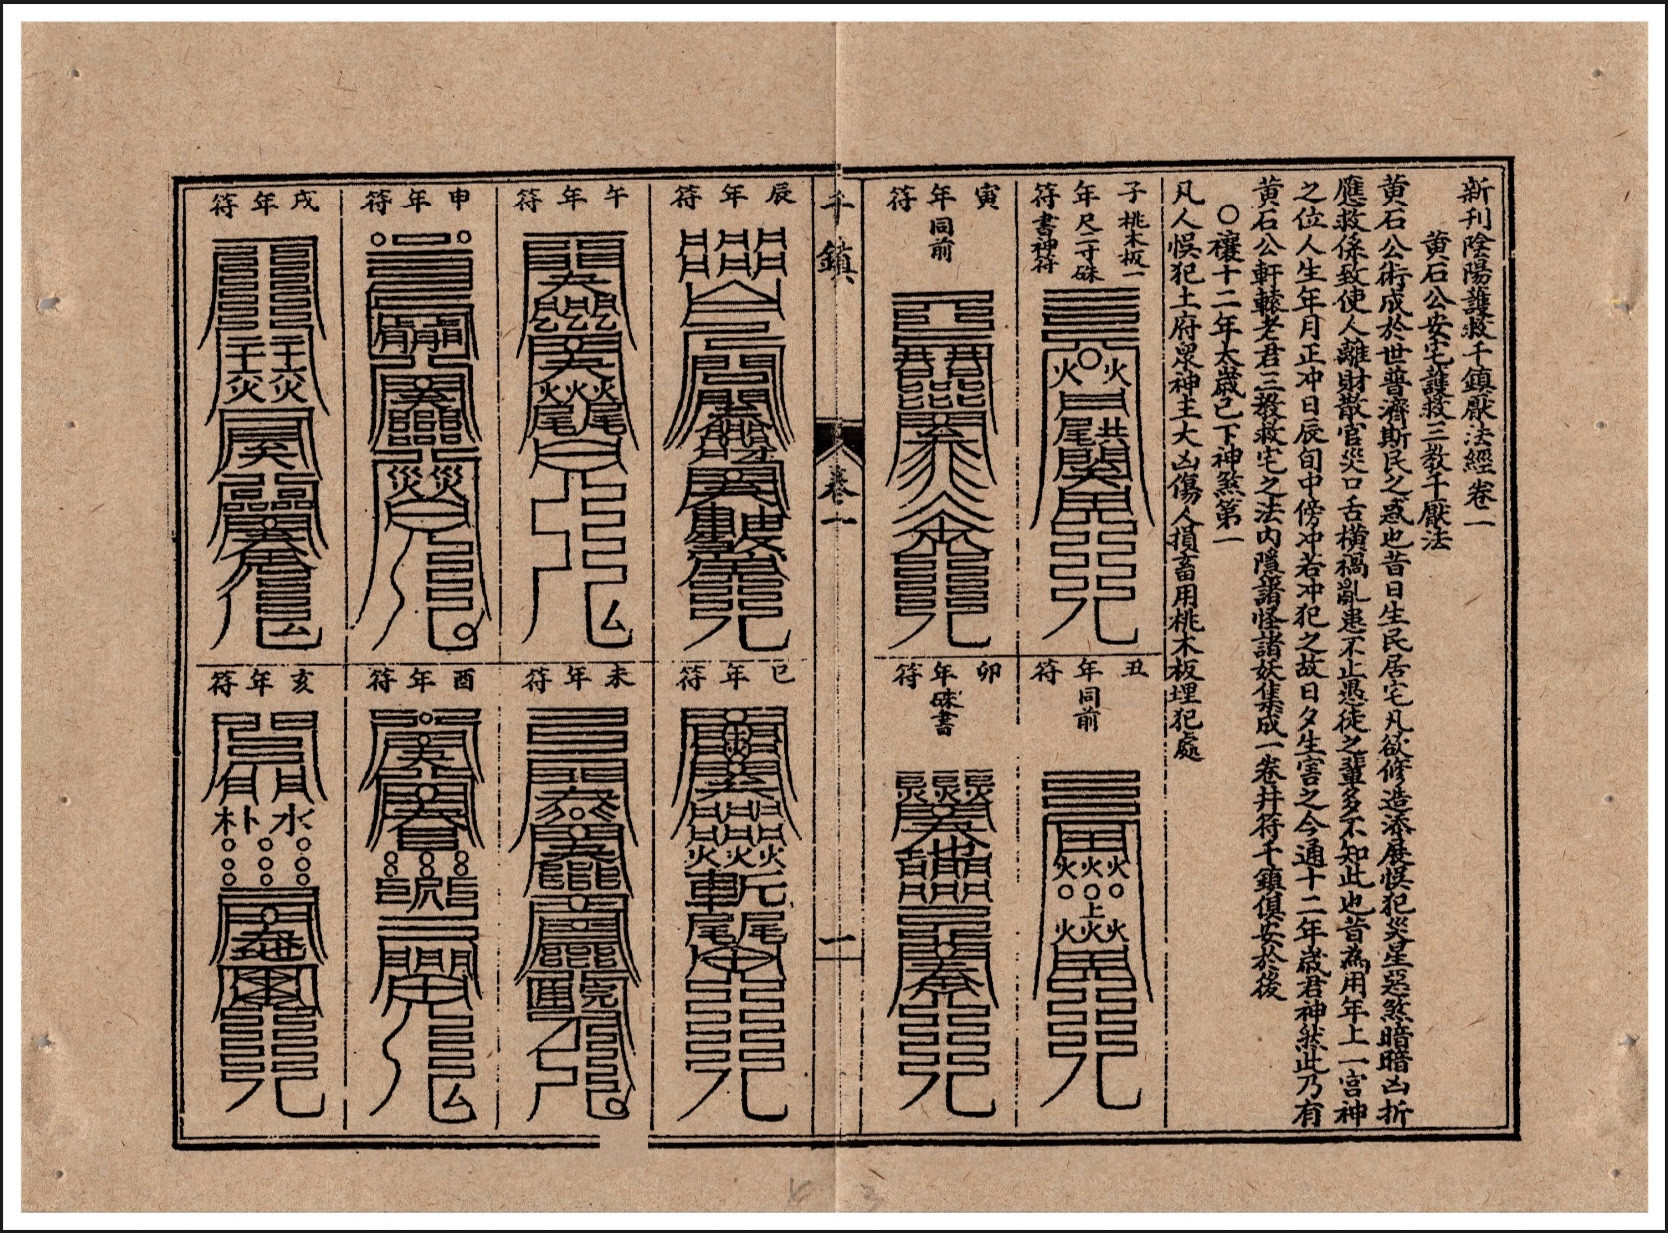 新刊陰陽護救千鎮厭法經卷一
黃石公安宅護救三教千厭法
黃石公術成於世普濟斯民之惑也昔日生民居宅凡欲修造添展悞犯災星惡煞暗暗凶折
應救係致使人離財散官災口舌橫禍亂患不止愚徒之輩多不知此也昔為用年上一宮神
之位人生年月正冲日辰旬中傍冲若冲犯之故日夕生害之今通十二年歲君神煞此乃有
黃石公軒轅老君三教救宅之法内隱諸怪諸妖集成一卷并符千鎮俱安於後
○禳十二年太歲己下神煞第一
凡人悞犯土府眾神主大凶傷人損畜用桃木板埋犯處
子年符 桃木板一尺二寸硃書神符
丑年符 同前
寅年符 同前
卯年符 硃書
千鎮 卷一 一
辰年符
巳年符
午年符
未年符
申年符
酉年符
戌年符
亥年符